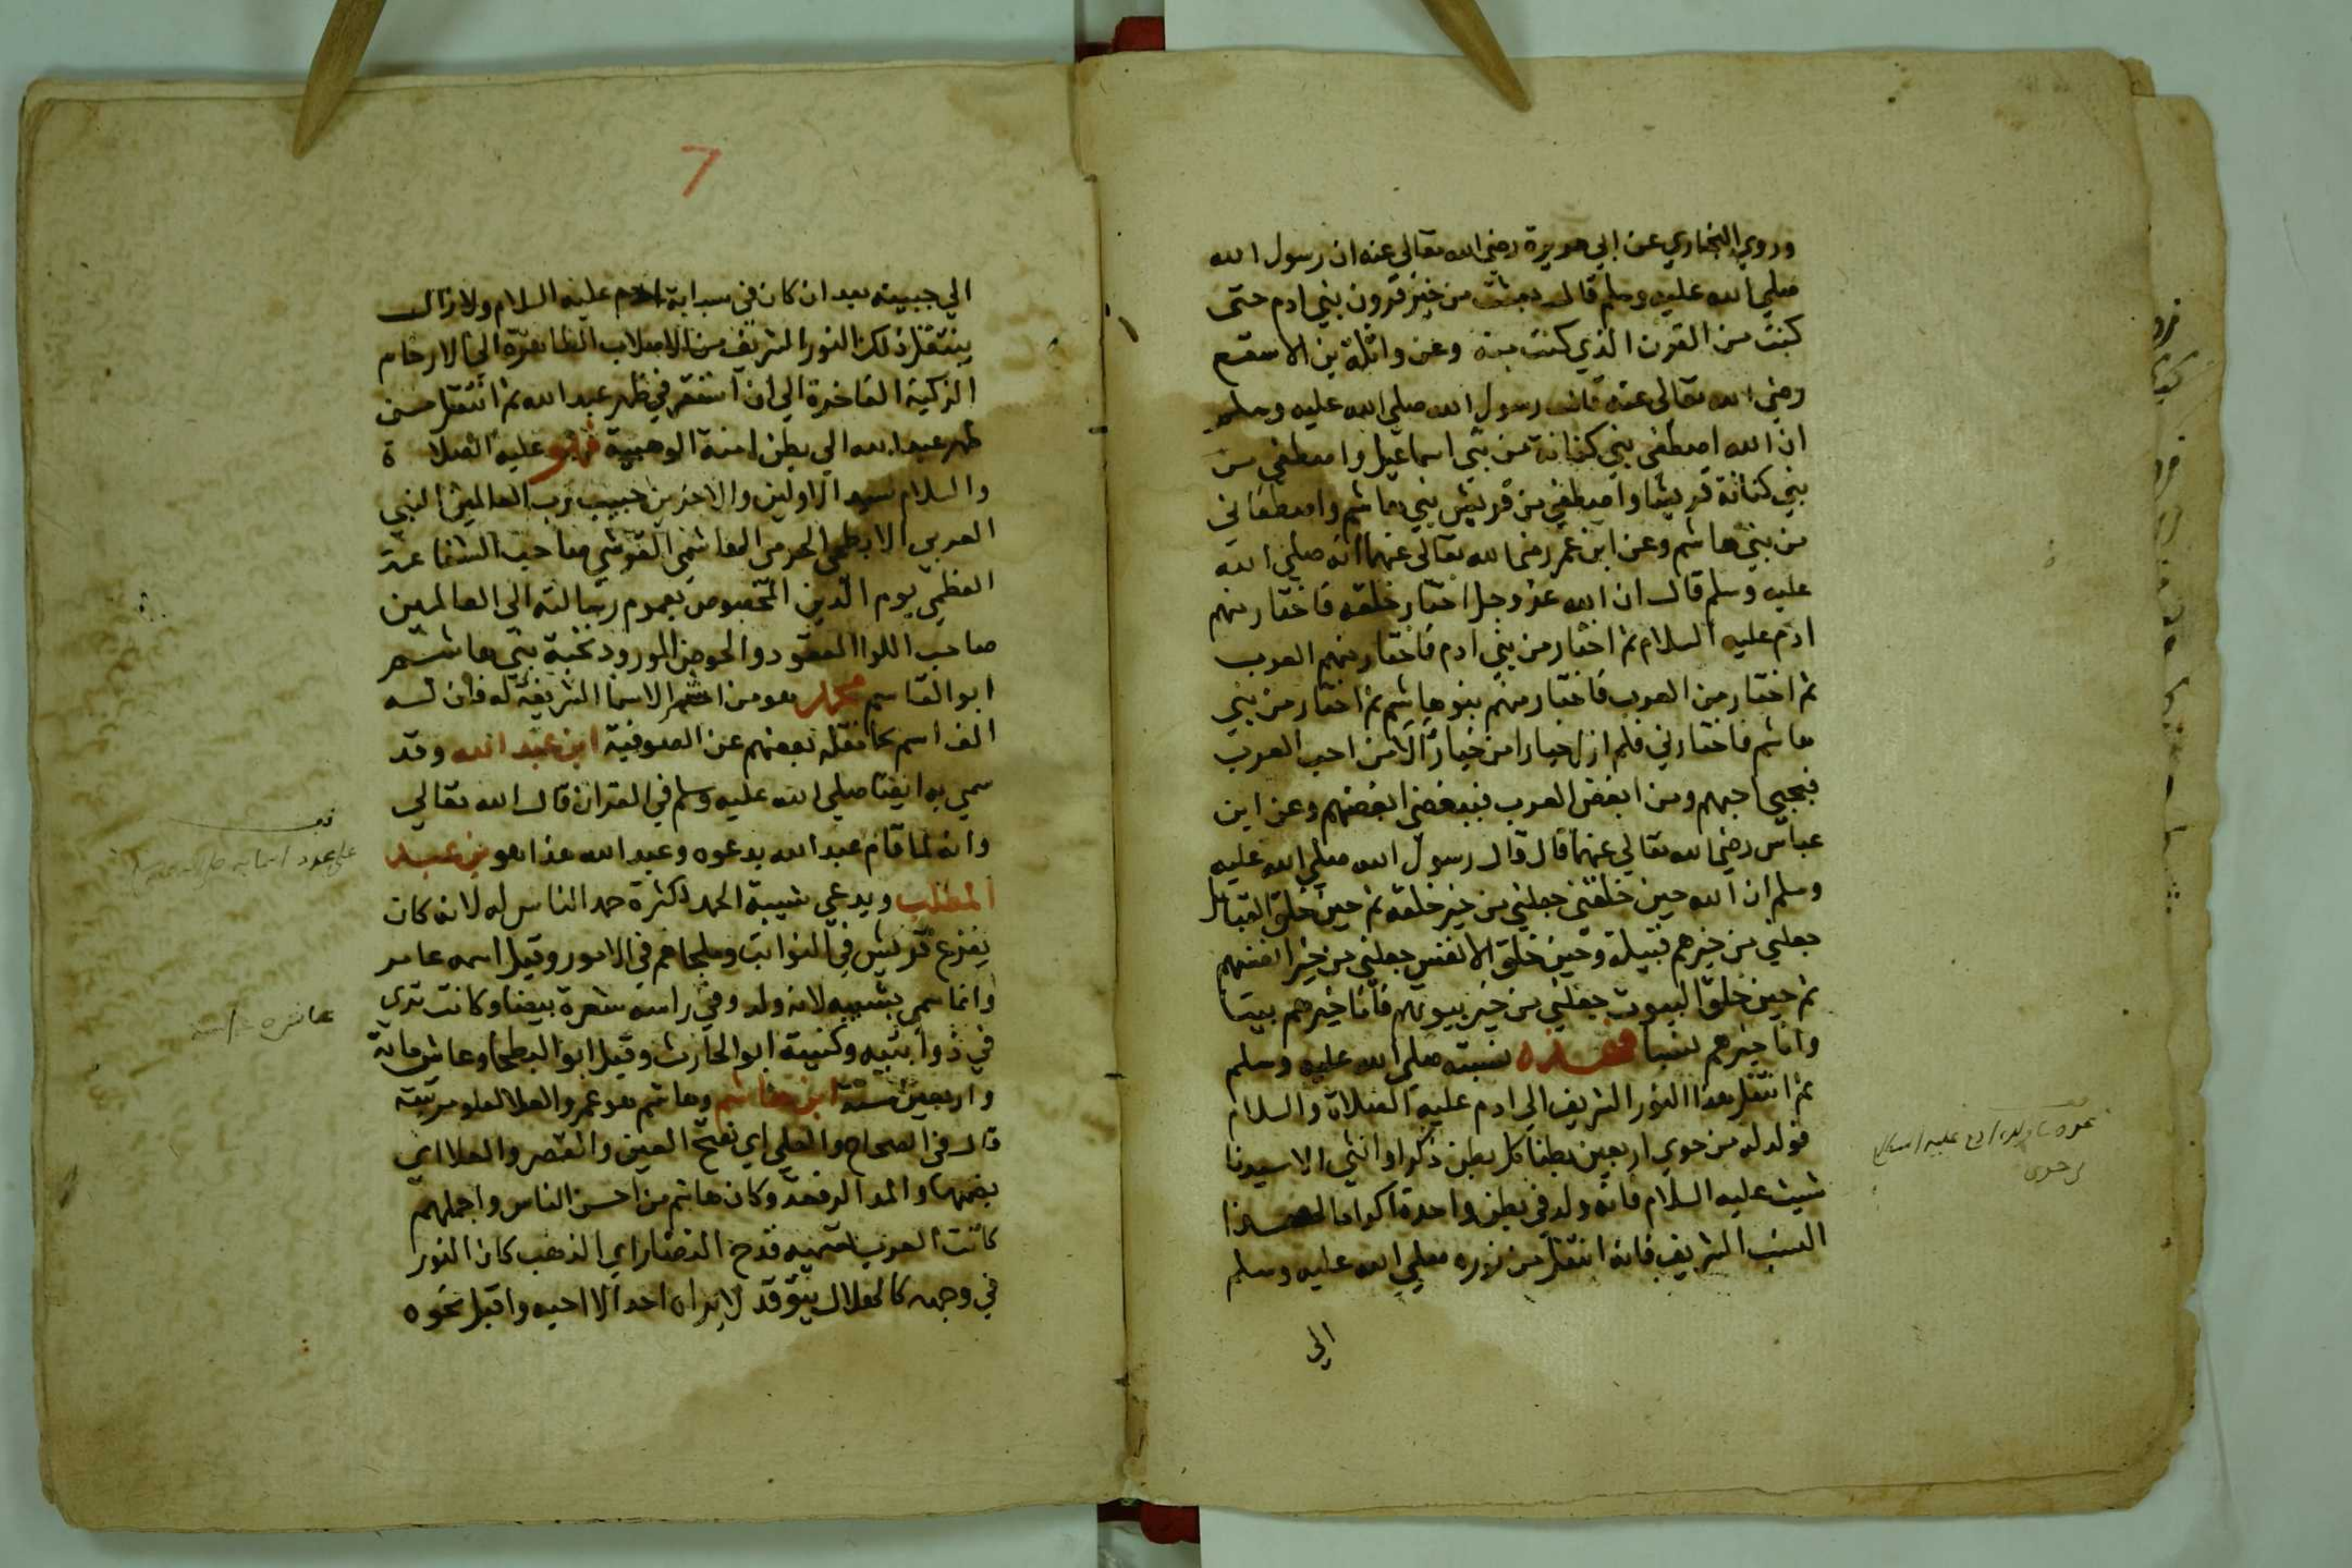 وروي البخاري عن ابي هريرة رضي الله تعالى عنه ان رسول الله
صلي الله عليه وسلم قال بعثت من خير قرون بني ادم حتى
كنت من القرن الذي كنت منه وعن واثلة بن الاسقع
رضي الله تعالى عنه قال رسول الله صلي الله عليه وسلم
ان الله اصطفى بني كنانة من بني اسماعيل واصطفي من
بني كنانة قريشا واصطفي من قريش بني هاشم واصطفاني
من بني هاشم وعن ابن عمر رضي الله تعالى عنهما انه صلي الله
عليه وسلم قال ان الله عز وجل اختار خلقه فاختار منهم
ادم عليه السلام ثم اختار من بني ادم فاختار منهم العرب
ثم اختار من العرب فاختار منهم بنو هاشم ثم اختار من بني
هاشم فاختارني فلم ازل خيارا من خيار الا من احب العرب
فبحبي احبهم ومن ابغض العرب فببغضي ابغضهم وعن ابن
عباس رضي الله تعالي عنهما قال قال رسول الله صلي الله عليه
وسلم ان الله حين خلقني جعلني من خير خلقه ثم حين خلق القبائل
جعلني من خيرهم قبيلة وحين خلق الانفس جعلني من خير انفسهم
ثم حين خلق البيوت جعلني من خير بيوتهم فانا خيرهم بيتا
وانا خيرهم نسبا فهذه نسبته صلي الله عليه وسلم
ثم انتقل هذا النور الشريف الي ادم عليه الصلاة والسلام
فولد له من حوي اربعين بطنا كل بطن ذكرا وانثي الا سيدنا
شيث عليه السلام فانه ولد في بطن واحدة اكراما لهذا
النسب الشريف فانه انتقل من نوره صلي الله عليه وسلم
الي
7
الي جبينه بعد ان كان في سبابة ادم عليه السلام ولازال
ينتقل ذلك النور الشريف من الاصلاب الطاهرة الي الارحام
الزكية الفاخرة الي ان استقر في ظهر عبد الله ثم انتقل من
ظهر عبد الله الي بطن امنة الوهبية فهو عليه الصلاة
والسلام سيد الاولين والاخرين حبيب رب العالمين النبي
العربي الابطحي الحرمي الهاشمي القرشي صاحب الشفاعة
العظمي يوم الدين المخصوص بعموم رسالته الى العالمين
صاحب اللوا المعقود والحوض المورود نخبة بني هاشم
ابو القاسم محمد هو من اشهر الاسما الشريفة له فان له
الف اسم كما نقله بعضهم عن الصوفية ابن عبد الله وقد
سمي به ايضا صلي الله عليه وسلم في القران قال الله تعالي
وانه لما قام عبد الله يدعوه وعبد الله هذا هو بن عبد
المطلب ويدعي شيبة الحمد لكثرة حمد الناس له لانه كان
يفزع قريش في النوايب وملجاهم في الامور وقيل اسمه عامر
وانما سمي بشيبه لانه ولد وفي راسه شعرة بيضا وكانت تري
في ذوابتيه وكنيته ابو الحارث وقيل ابو البطحا وعاش ماية
واربعين سنة ابن هاشم وهاشم هو عمرو العلا لعلو مرتبته
قال في الصحاح والعلي اي بفتح العين والقصر والعلا اي
بضمها والمد الرفعة وكان هاشم من احسن الناس واجملهم
كانت العرب تسميه قدح النضار اي الذهب كان النور
في وجهه كالهلال يتوقد لا يراه احد الا احبه واقبل نحوه